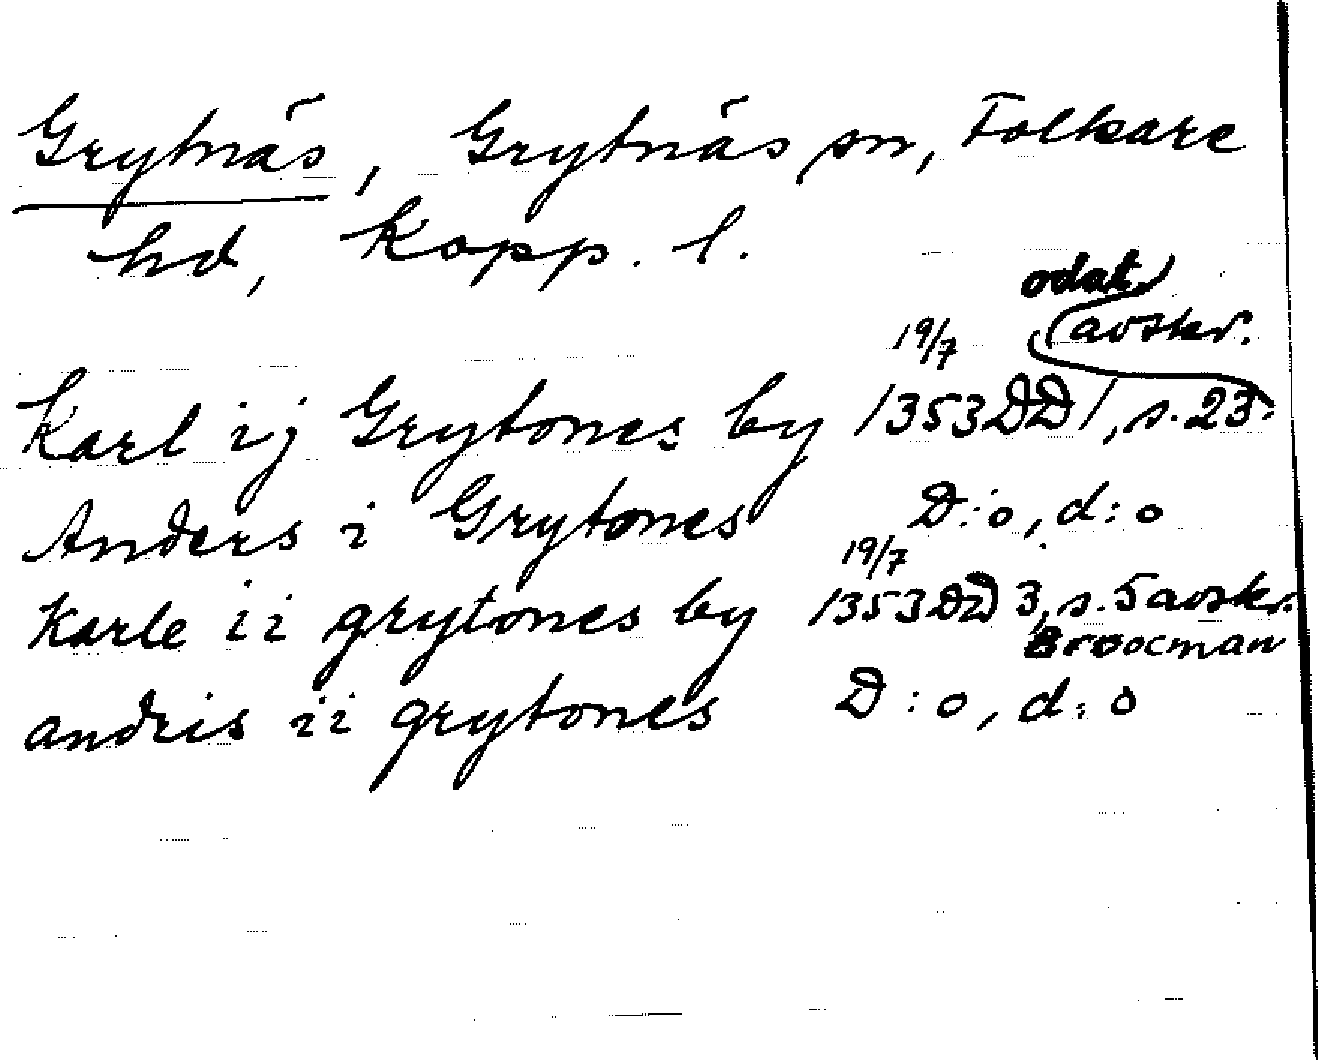 Grytnäs, Grytnäs sn, Folkare
hd, Kopp. l.
odat.
avskr.
Karl ij Grytones by 19/7 1353 DD 1, s. 23.
Anders i Grytones D:o, d:o
Karle ii grytones by 19/7 1353 DD 3, s. 5 avskr.
Broocman
andris ii grytones D:o, d:o